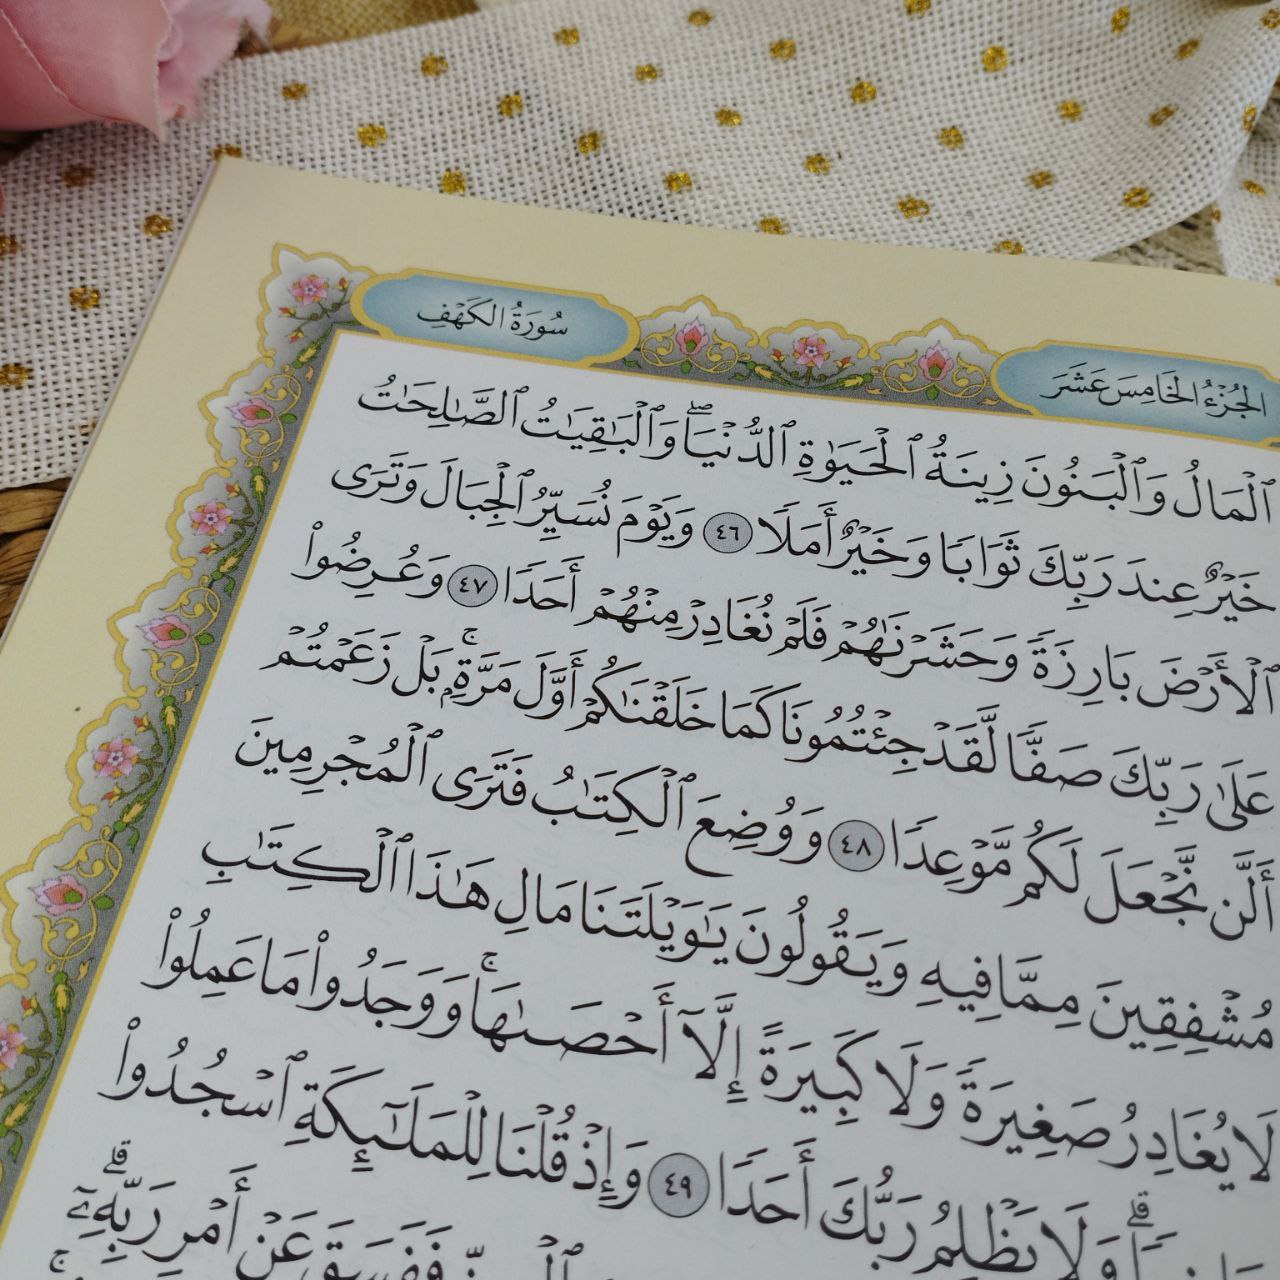 الجُزْءُ الخَامِسَ عَشَرَ
سُورَةُ الكَهْفِ
ٱلْمَالُ وَٱلْبَنُونَ زِينَةُ ٱلْحَيَوٰةِ ٱلدُّنْيَاۖ وَٱلْبَٰقِيَٰتُ ٱلصَّٰلِحَٰتُ
خَيْرٌ عِندَ رَبِّكَ ثَوَابًا وَخَيْرٌ أَمَلًا ٤٦ وَيَوْمَ نُسَيِّرُ ٱلْجِبَالَ وَتَرَى
ٱلْأَرْضَ بَارِزَةً وَحَشَرْنَٰهُمْ فَلَمْ نُغَادِرْ مِنْهُمْ أَحَدًا ٤٧ وَعُرِضُوا۟
عَلَىٰ رَبِّكَ صَفًّا لَّقَدْ جِئْتُمُونَا كَمَا خَلَقْنَٰكُمْ أَوَّلَ مَرَّةٍۭۚ بَلْ زَعَمْتُمْ
أَلَّن نَّجْعَلَ لَكُم مَّوْعِدًا ٤٨ وَوُضِعَ ٱلْكِتَٰبُ فَتَرَى ٱلْمُجْرِمِينَ
مُشْفِقِينَ مِمَّا فِيهِ وَيَقُولُونَ يَٰوَيْلَتَنَا مَالِ هَٰذَا ٱلْكِتَٰبِ
لَا يُغَادِرُ صَغِيرَةً وَلَا كَبِيرَةً إِلَّآ أَحْصَىٰهَاۚ وَوَجَدُوا۟ مَا عَمِلُوا۟
وَلَا يَظْلِمُ رَبُّكَ أَحَدًا ٤٩ وَإِذْ قُلْنَا لِلْمَلَٰٓئِكَةِ ٱسْجُدُوا۟
فَفَسَقَ عَنْ أَمْرِ رَبِّهِۦٓۗ